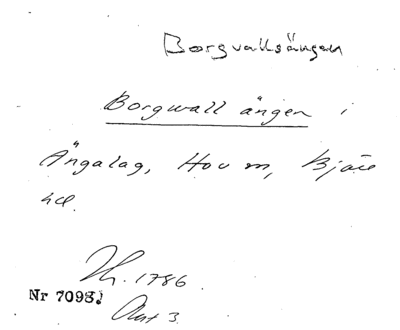 Borgvallsängen
Borgwall ängen i
Ängalag, Hov sn, Bjäre
hd.
1786
Nr 7098.
Akt 3